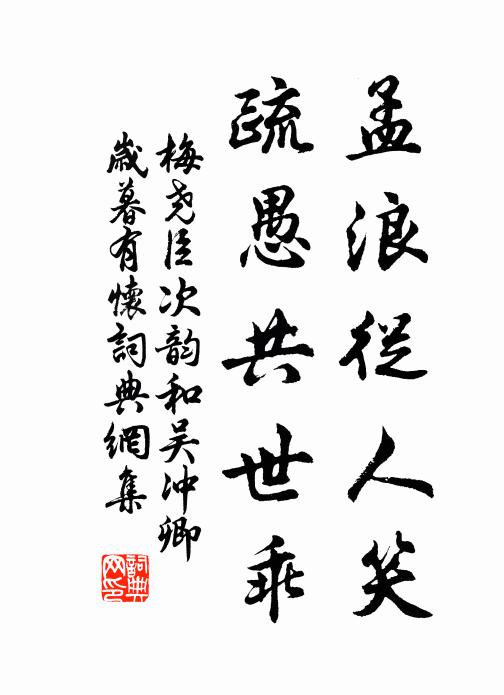 孟浪從人笑
疏愚共世乖
梅堯臣次韵和吴冲卿
歲暮有懷詞典網集
詞典網印